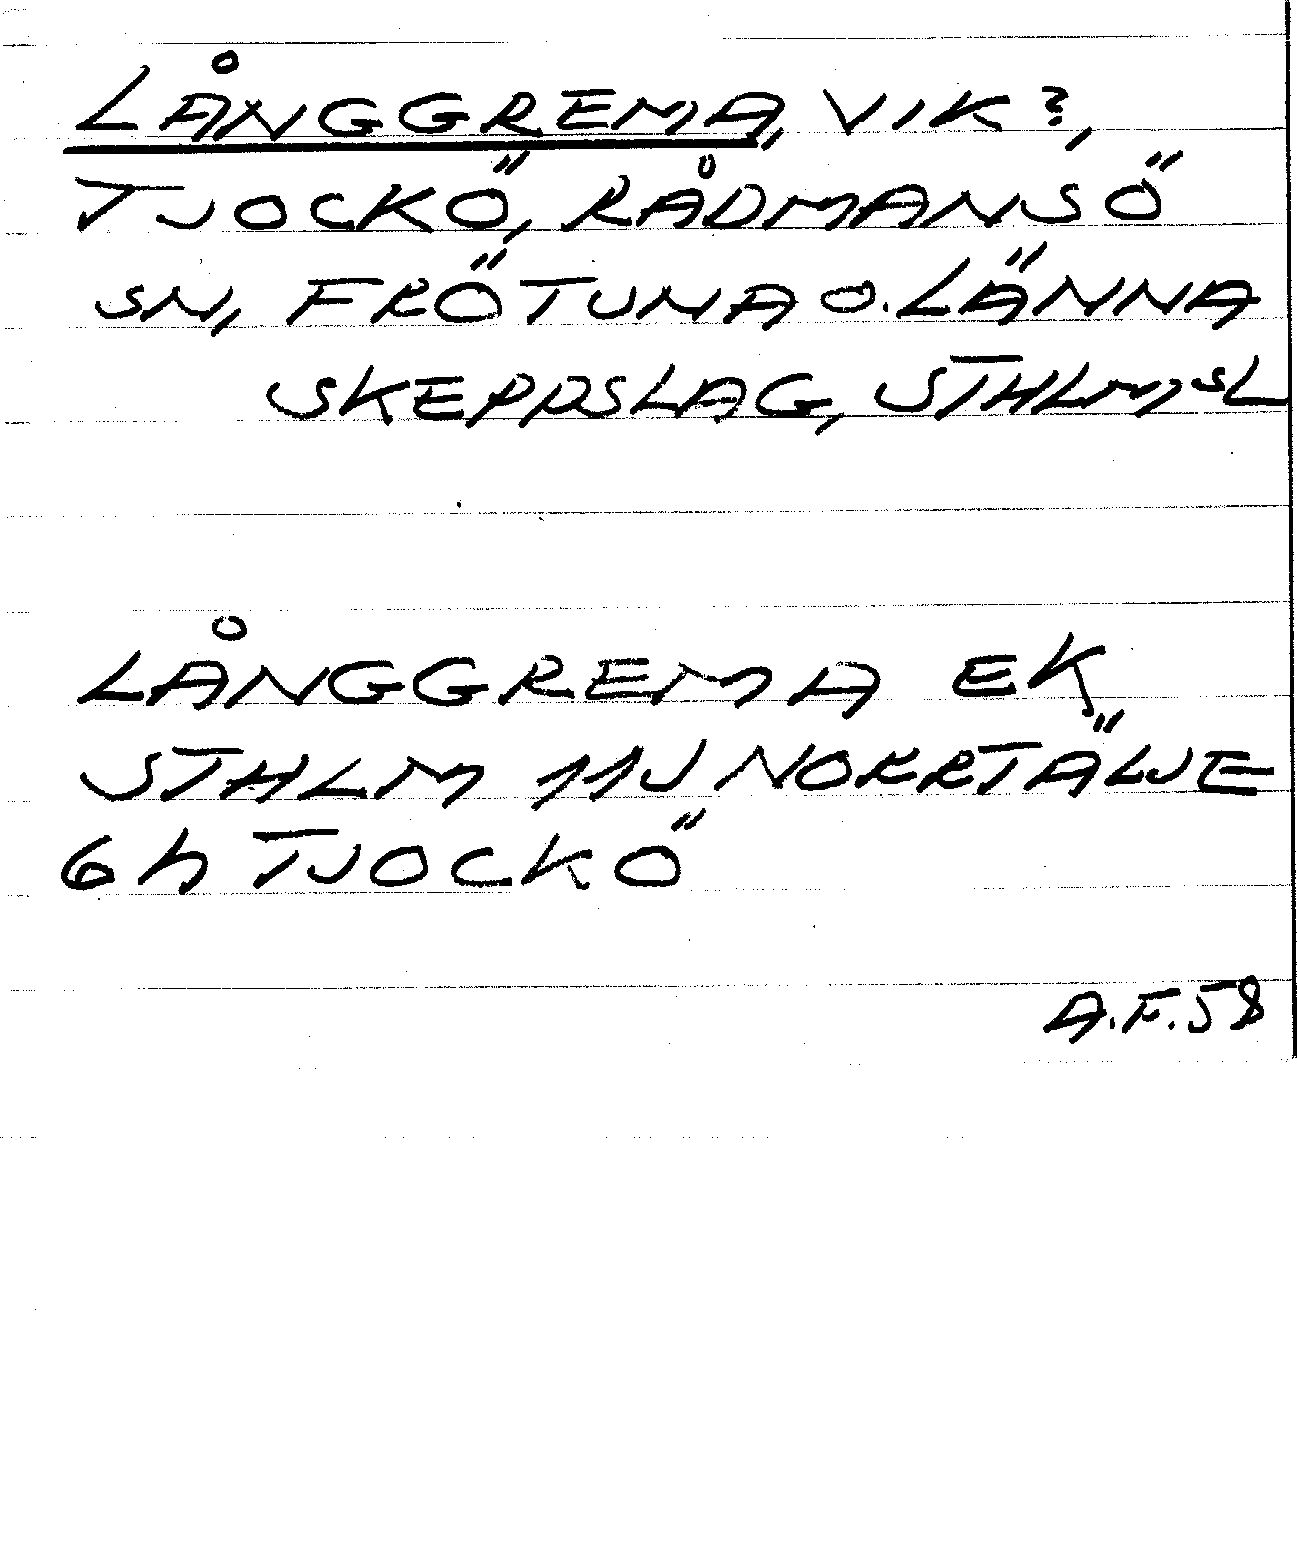 LÅNGGREMA, VIK?,
TJOCKÖ, RÅDMANSÖ
SN, FRÖTUNA O. LÄNNA
SKEPPSLAG, STHLMSL
LÅNGGREMA EK
STHLM 11J NORRTÄLJE
6h TJOCKÖ
A.F.58